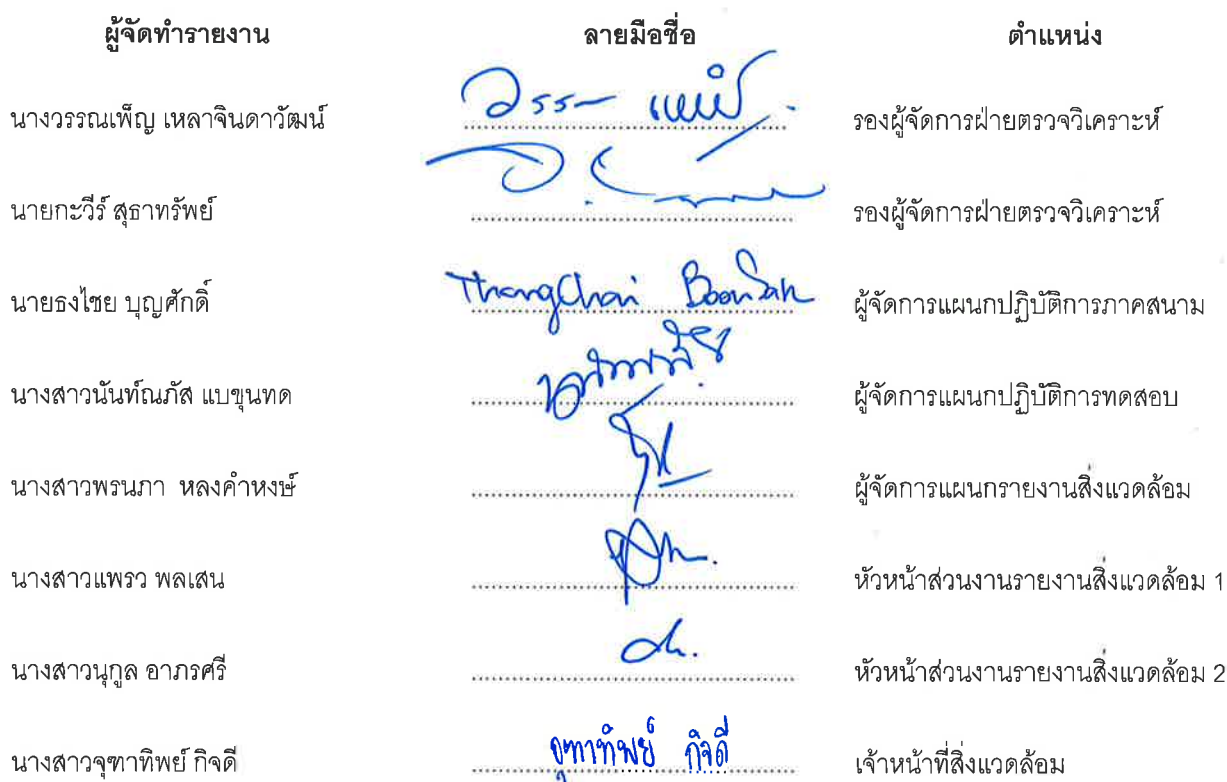 ผู้จัดทำรายงาน ลายมือชื่อ ตำแหน่ง
นางวรรณเพ็ญ เหลาจินดาวัฒน์ วรรณเพ็ญ รองผู้จัดการฝ่ายตรวจวิเคราะห์
นายกะวีร์ สุธาทรัพย์ รองผู้จัดการฝ่ายตรวจวิเคราะห์
นายธงไชย บุญศักดิ์ ThongChai BoonSak ผู้จัดการแผนกปฏิบัติการภาคสนาม
นางสาวนันท์ณภัส แบขุนทด ผู้จัดการแผนกปฏิบัติการทดสอบ
นางสาวพรนภา หลงคำหงษ์ ผู้จัดการแผนกรายงานสิ่งแวดล้อม
นางสาวแพรว พลเสน หัวหน้าส่วนงานรายงานสิ่งแวดล้อม 1
นางสาวนุกูล อาภรศรี หัวหน้าส่วนงานรายงานสิ่งแวดล้อม 2
นางสาวจุฑาทิพย์ กิจดี จุฑาทิพย์ กิจดี เจ้าหน้าที่สิ่งแวดล้อม